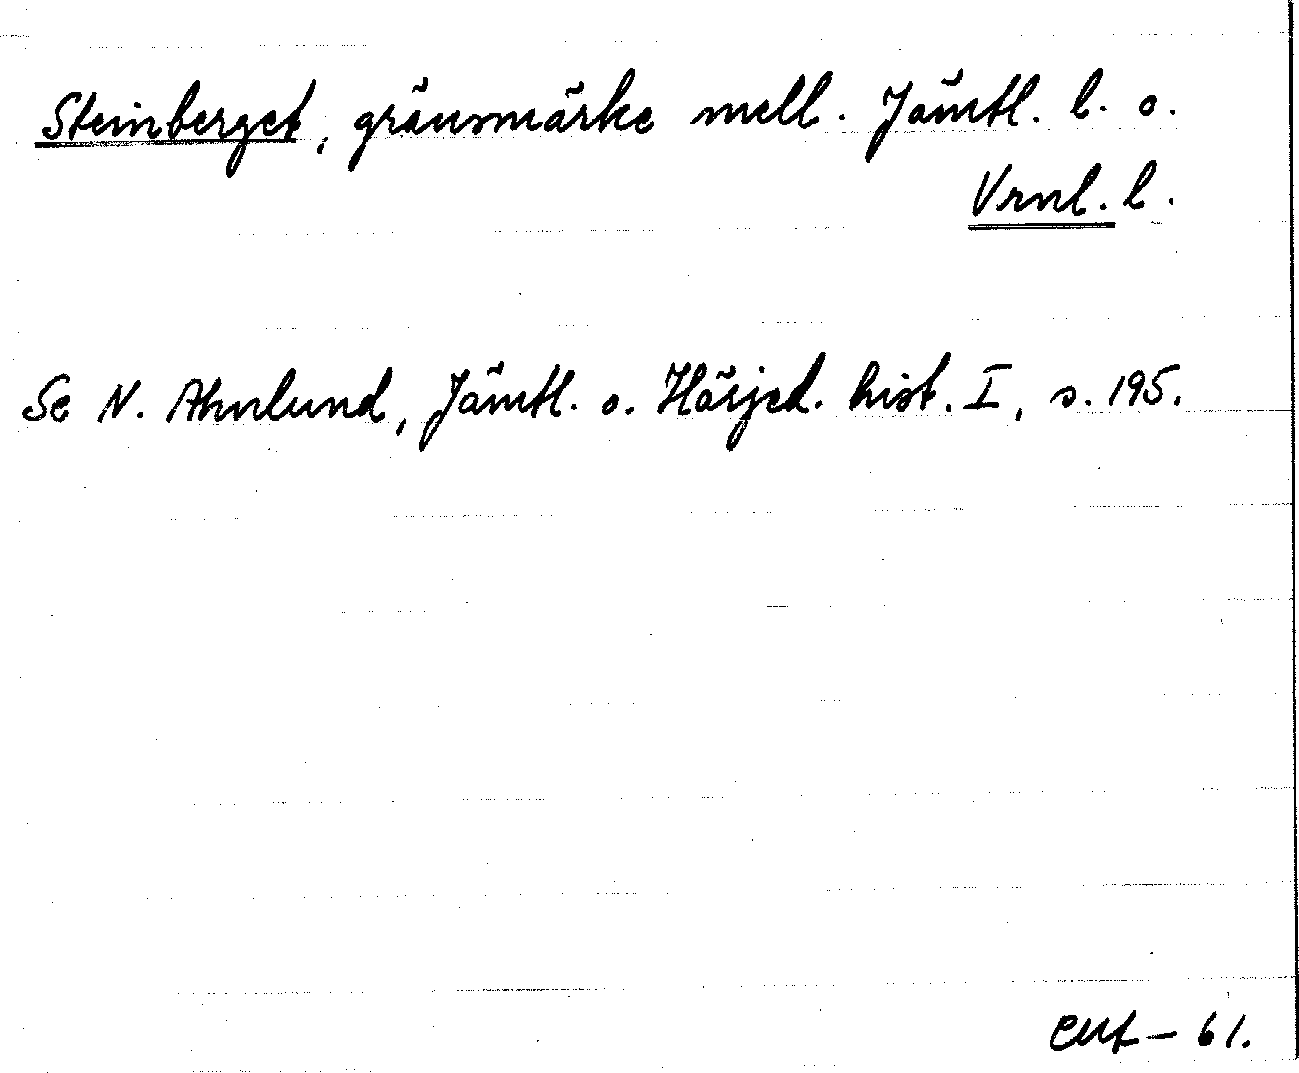 Steinberget, gränsmärke mell. Jämtl. l. o.
Vrml. l.
Se N. Ahnlund, Jämtl. o. Härjed. hist. I, s. 195.
- 61.